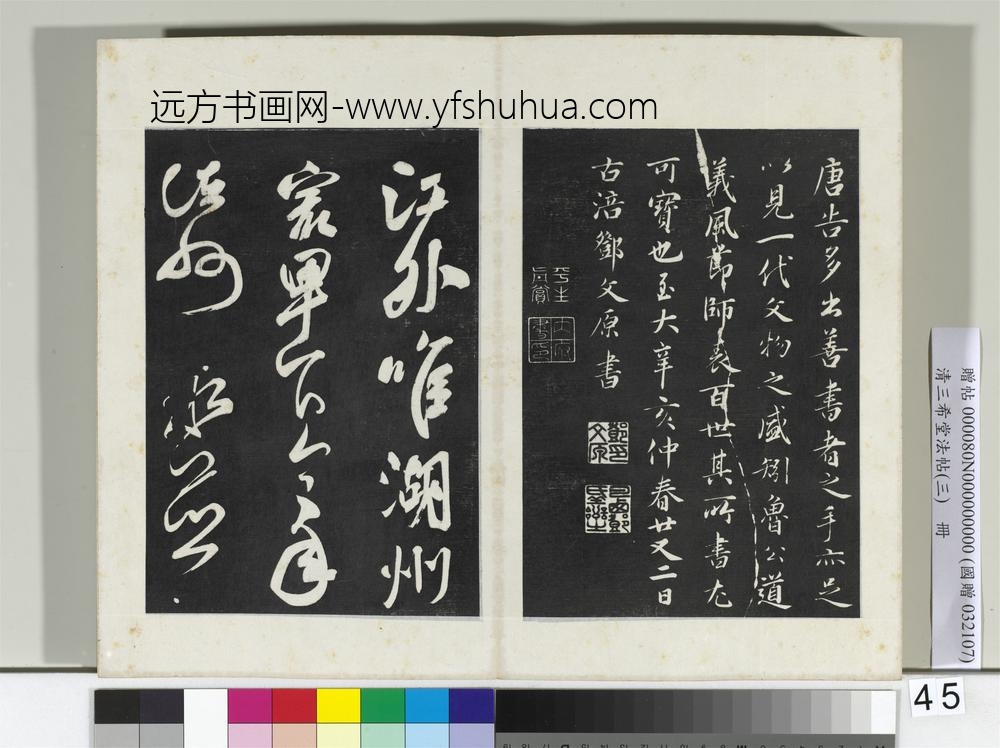 远方书画网-www.yfshuhua.com
唐告多出善書者之手亦足
以見一代文物之盛矧魯公道
義風節師表百世其所書尤
可寶也至大辛亥仲春廿又二日
古涪鄧文原書
江外唯湖州
最卑下今年
諸州水並
贈帖 000080N000000000 (國贈 032107)
清三希堂法帖(三) 冊
45